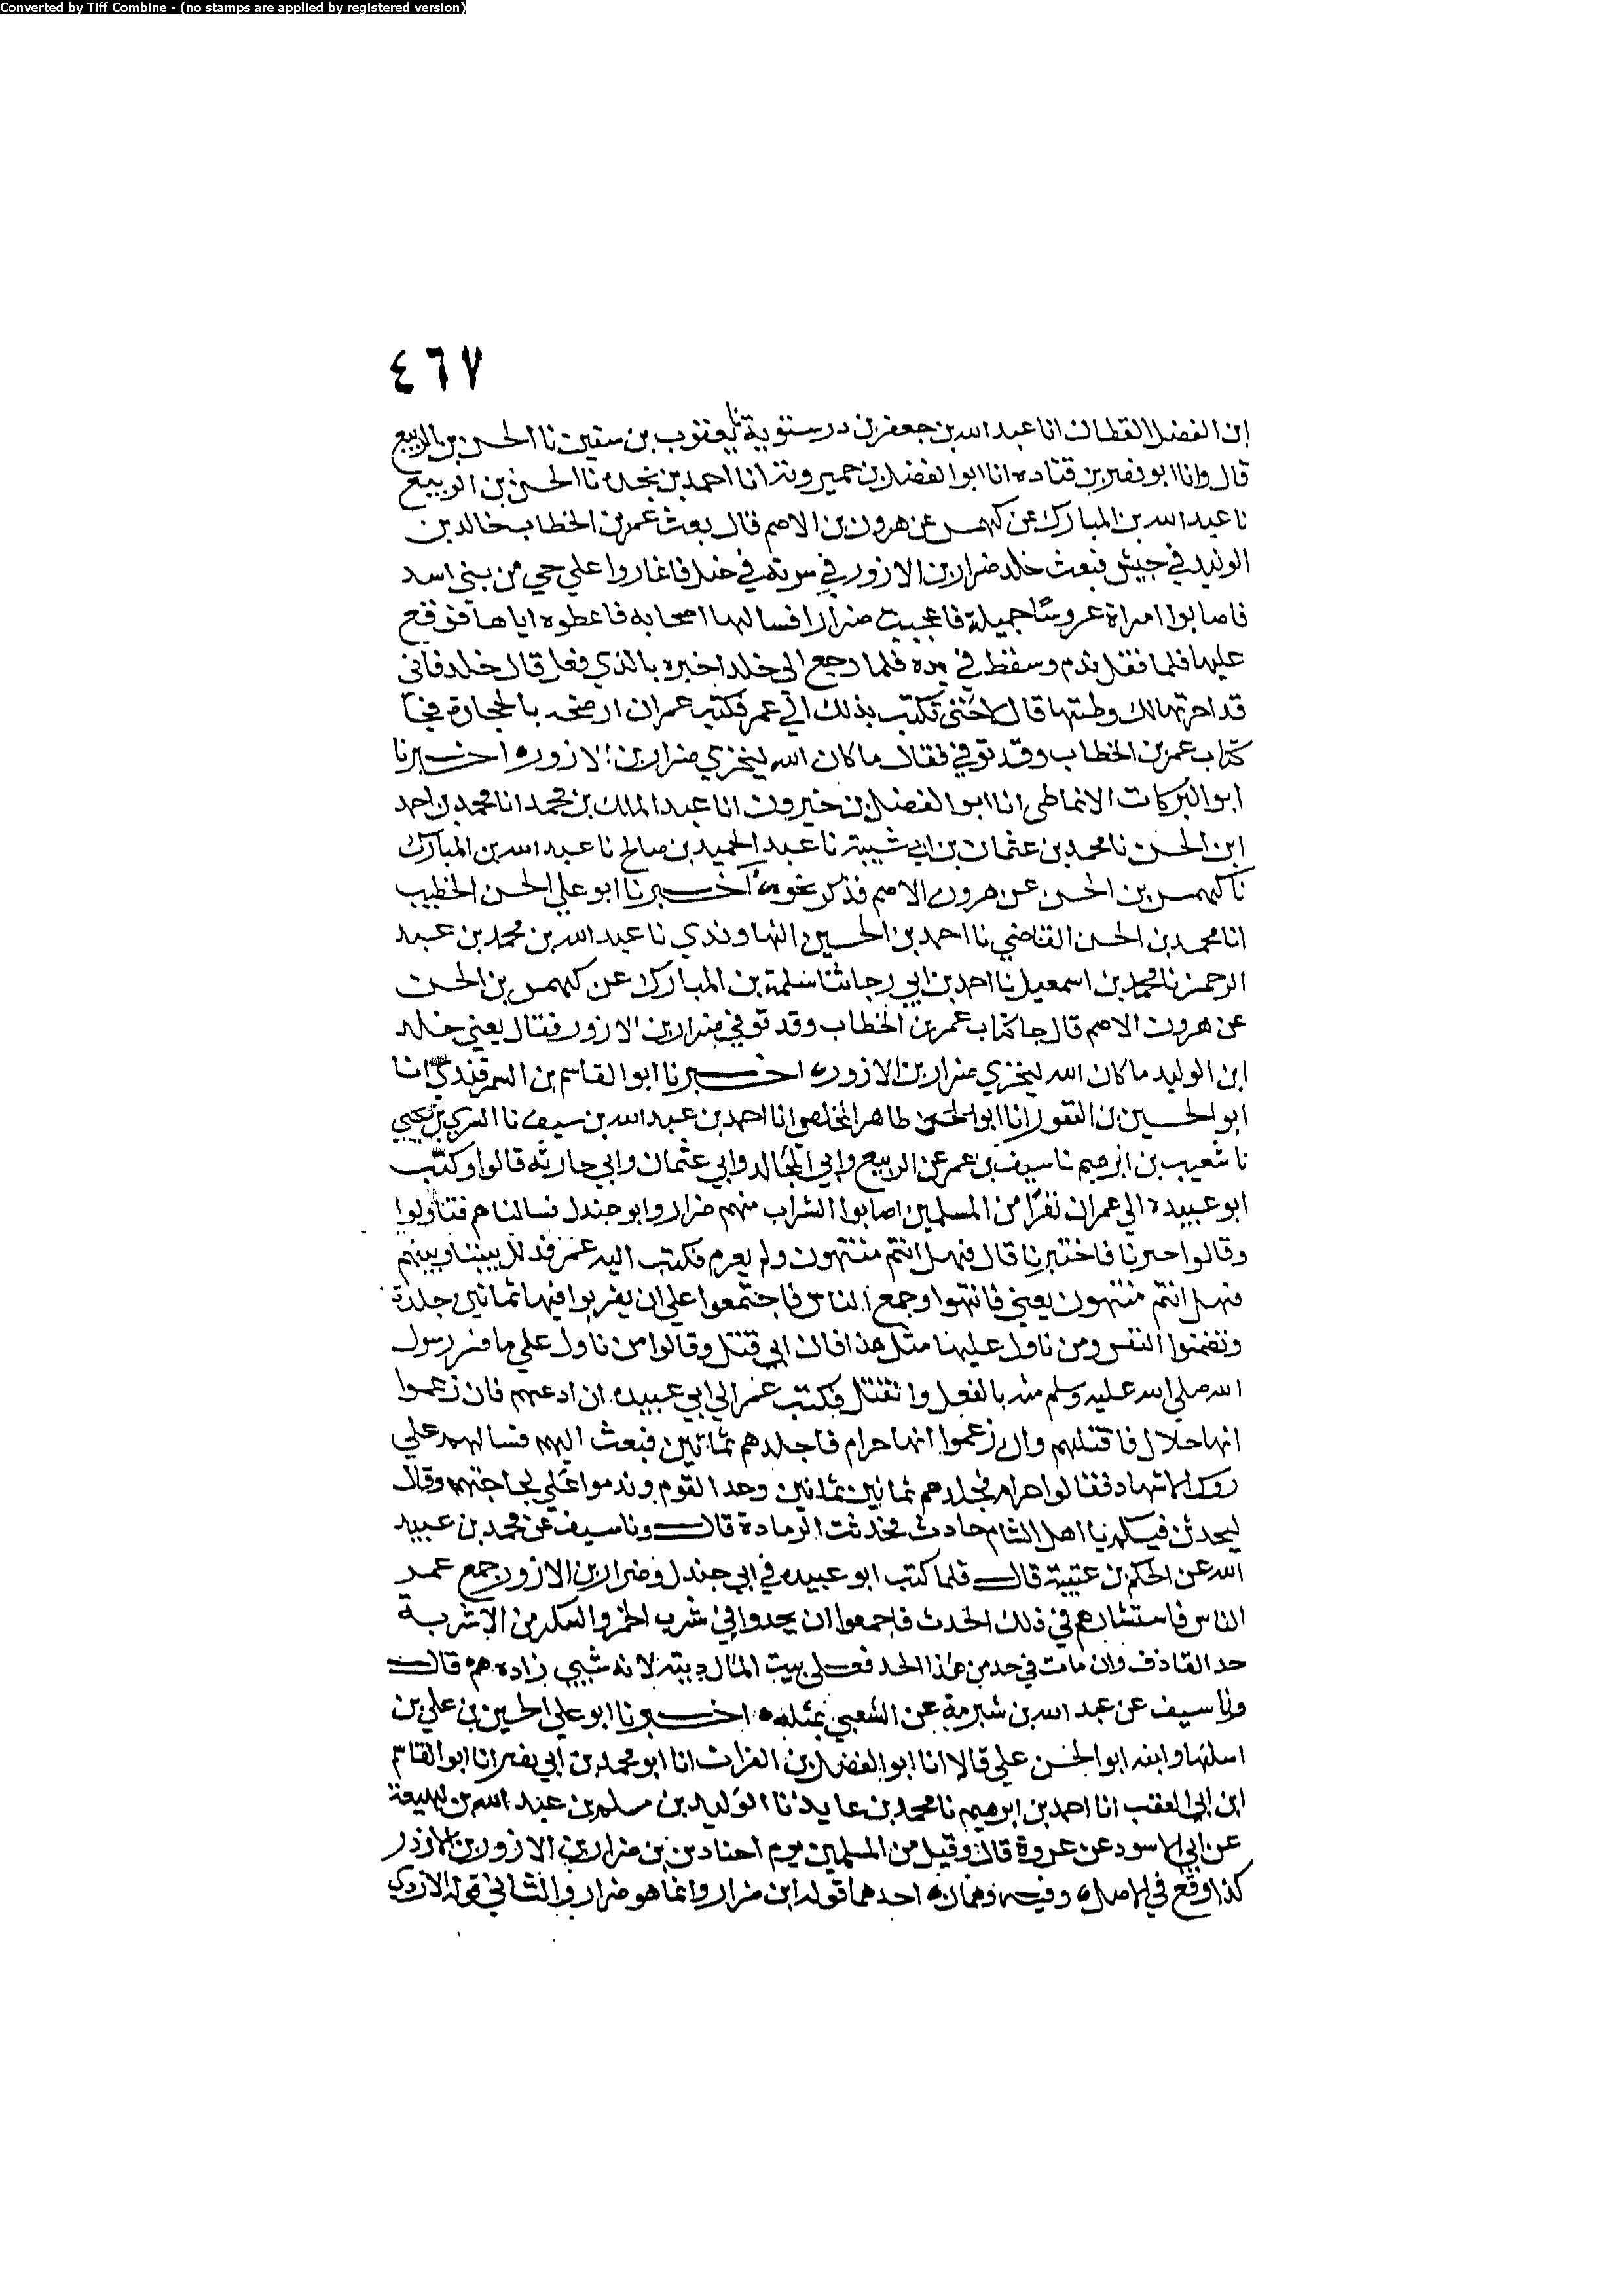 Converted by Tiff Combine - (no stamps are applied by registered version)
٤٦٧
ابن الفضل القطان انا عبد الله بن جعفر بن درستوية نا يعقوب بن سفين نا الحسن بن الربيع
قال وانا ابو نصر بن قتاده انا ابو الفضل بن خميرويه انا احمد بن نجده نا الحسن بن الربيع
نا عبد الله بن المبارك عن كهمس عن هرون بن الاصم قال بعث عمر بن الخطاب خالد بن
الوليد في جيش فبعث خلد ضرار بن الازور في سريه في خيل فاغاروا علي حي من بني اسد
فاصابوا امراة عروسًا جميلة فاعجبت ضرارا فسالها اصحابه فاعطوه اياها فوقع
عليها فلما فقل ندم وسقط في يده فلما رجع الى خلد اخبره بالذي فعل قال خلد فاني
قد اجزتها لك وطيبتها قال لا حتى تكتب بذلك الي عمر فكتب عمر ان ارضخه بالحجارة فجا
كتاب عمر بن الخطاب وقد توفي فقال ما كان الله ليخزي ضرار بن الازور ه اخبرنا
ابو البركات الانماطي انا ابو الفضل بن خيرون انا عبد الملك بن محمد انا محمد بن احمد
ابن الحسن نا محمد بن عثمان بن ابي شيبة نا عبد الحميد بن صالح نا عبد الله بن المبارك
نا كهمس بن الحسن عن هرون الاصم فذكر نحوه اخبرنا ابو علي الحسن الخطيب
انا محمد بن الحسن القاضي نا احمد بن الحسين النهاوندي نا عبد الله بن محمد بن عبد
الرحمن نا محمد بن اسمعيل نا احمد بن ابي رجا ثنا سلمة بن المبارك عن كهمس بن الحسن
عن هرون الاصم قال جا كتاب عمر بن الخطاب وقد توفي ضرار بن الازور فقال يعني خلد
ابن الوليد ما كان الله ليخزي ضرار بن الازور ه اخبرنا ابو القاسم بن السمرقندي انا
ابو الحسين بن النقور انا ابو طاهر المخلص انا احمد بن عبد الله بن سيف نا السري بن يحيي
نا شعيب بن ابرهيم نا سيف بن عمر عن الربيع وابي المجالد وابي عثمان وابي حارثه قالوا وكتب
ابو عبيدة الي عمر ان نفرًا من المسلمين اصابوا الشراب منهم ضرار وابو جندل فسالناهم فتاولوا
وقالوا خيرنا فاخترنا قال فهل انتم منتهون ولم يعزم فكتب اليه عمر فذلك بيننا وبينهم
فهل انتم منتهون يعني فانتهوا وجمع الناس فاجتمعوا علي ان يضربوا فيها ثمانين جلدة
وتضمنوا النفس ومن تاول عليها مثل هذا فان ابي قتل وقالوا من تاول علي ما فسر رسول
الله صلي الله عليه وسلم منه بالفعل وا تقتل فكتب عمر الي ابي عبيده ان ادعهم فان زعموا
انها حلال فاقتلهم وان زعموا انها حرام فاجلدهم ثمانين فبعث اليهم فسالهم علي
روس الاشهاد فقالوا حرام فجلدهم ثمانين ثمانين وحد القوم وندموا علي لجاجتهم وقال
ليحدثن فيكم يا اهل الشام حادث فحدثت الرمادة قال ونا سيف عن محمد بن عبيد
الله عن الحكم بن عتيبة قال فلما كتب ابو عبيده في ابي جندل وضرار بن الازور جمع عمر
الناس فاستشارهم في ذلك الحدث فاجمعوا ان يحدوا في شرب الخمر والسكر من الاشربة
حد القاذف وان مات في حد من هذا الحد فعلى بيت المال ديته لانه شيي زاده هم قال
ونا سيف عن عبد الله بن شبرمة عن الشعبي بمثله ه اخبرنا ابو علي الحسين بن علي بن
اسلها وابنه ابو الحسن علي قالا انا ابو الفضل بن الفرات انا ابو محمد بن ابي نصر انا ابو القاسم
ابن ابي العقب انا احمد بن ابرهيم نا محمد بن عايذ نا الوليد بن مسلم بن عبد الله بن لهيعة
عن ابي الاسود عن عروة قال وقتل من المسلمين يوم اجنادين بن ضرار بن الازور بن الازور
كذا وقع في الاصل ه وفيه وهمان ه احدهما قوله ابن ضرار وانما هو ضرار والثاني قوله الازور